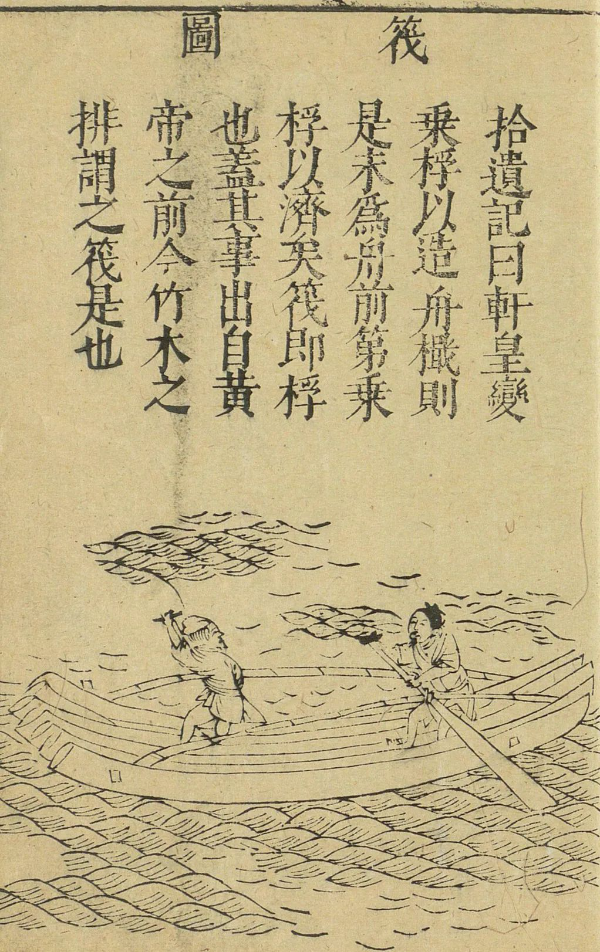 筏圖
拾遺記曰軒皇變
乗桴以造舟檝則
是未為舟前第乗
桴以濟矣筏即桴
也蓋其事出自黃
帝之前今竹木之
排謂之筏是也